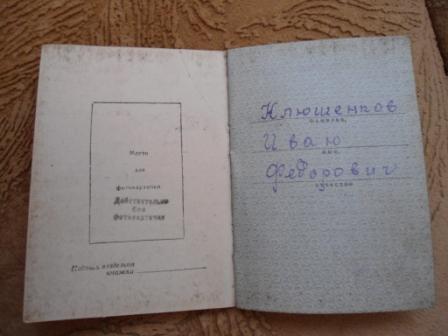 Место
для
фотокарточки
Действительно
без
Фотокарточки
Подпись владельца
книжки
Клюшенков
фамилия,
Иван
имя,
Федорович
отчество